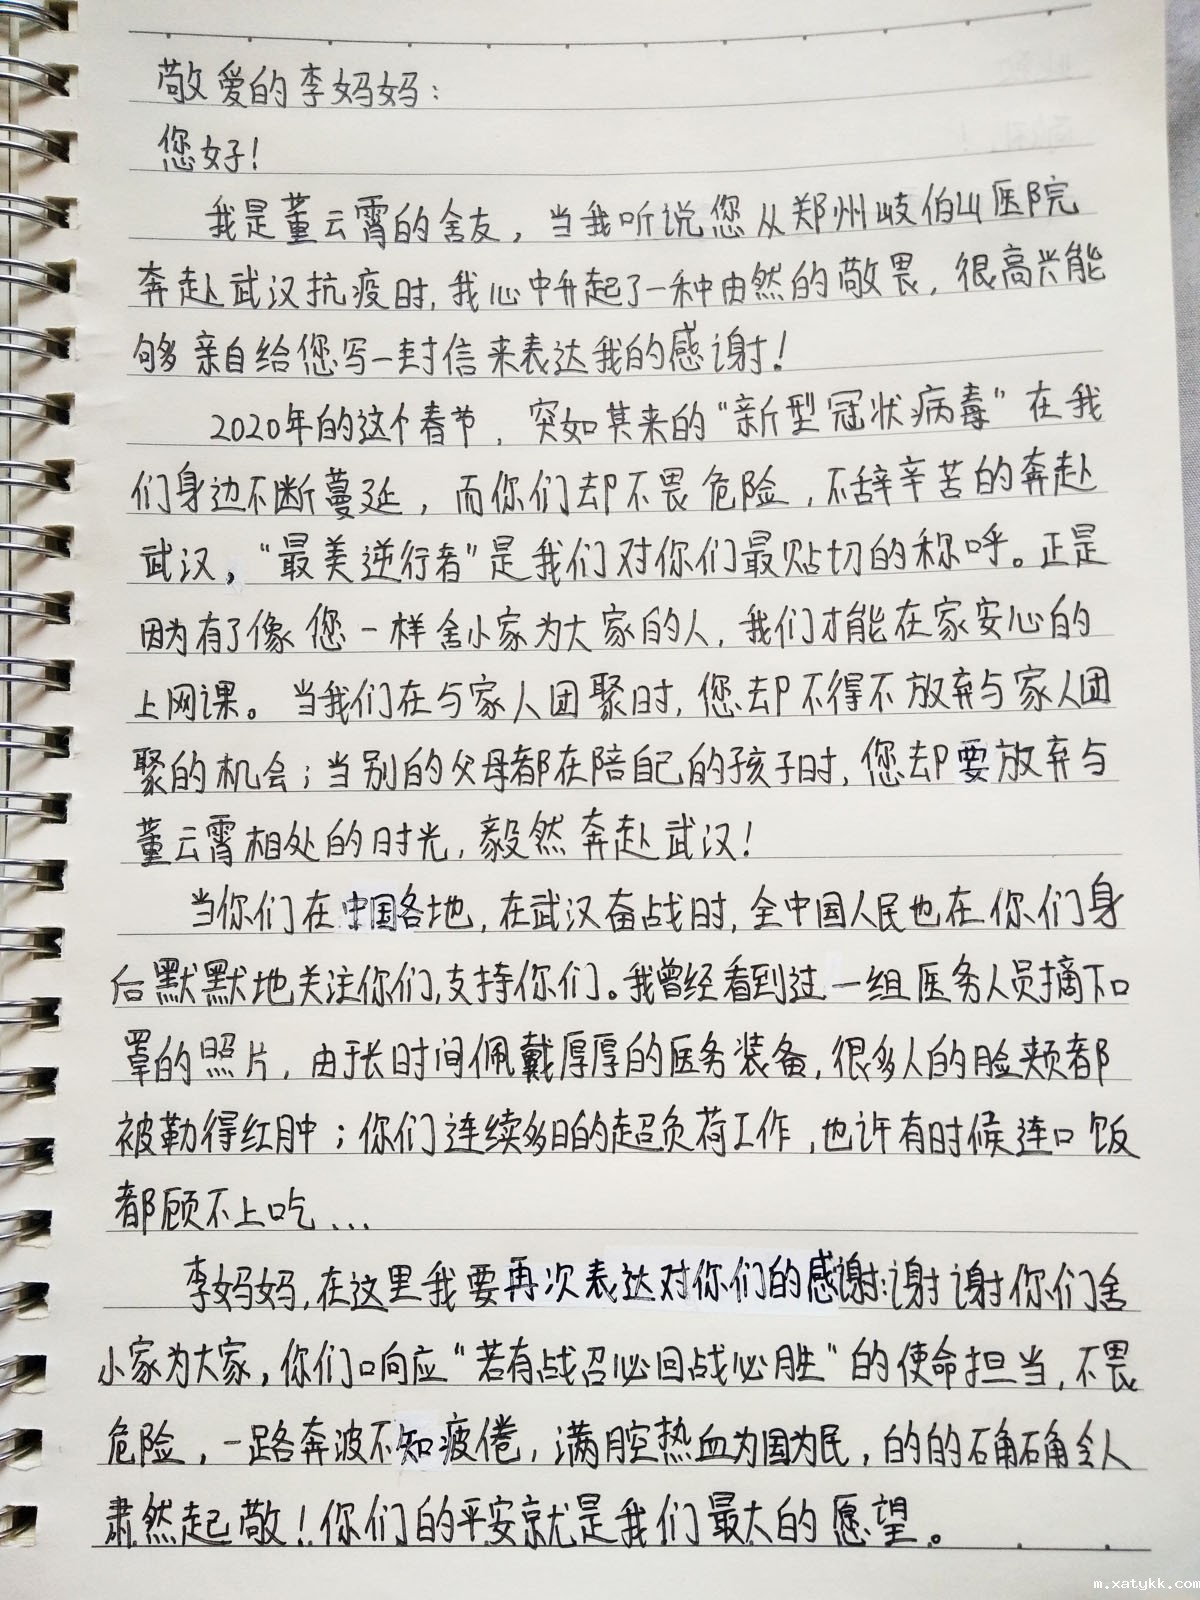 敬爱的李妈妈：
您好！
我是董云霄的舍友，当我听说您从郑州岐伯山医院
奔赴武汉抗疫时，我心中升起了一种由然的敬畏，很高兴能
够亲自给您写一封信来表达我的感谢！
2020年的这个春节，突如其来的“新型冠状病毒”在我
们身边不断蔓延，而你们却不畏危险，不辞辛苦的奔赴
武汉，“最美逆行者”是我们对你们最贴切的称呼。正是
因为有了像您一样舍小家为大家的人，我们才能在家安心的
上网课。当我们在与家人团聚时，您却不得不放弃与家人团
聚的机会；当别的父母都在陪自己的孩子时，您却要放弃与
董云霄相处的时光，毅然奔赴武汉！
当你们在中国各地，在武汉奋战时，全中国人民也在你们身
后默默地关注你们，支持你们。我曾经看到过一组医务人员摘下口
罩的照片，由于长时间佩戴厚厚的医务装备，很多人的脸颊都
被勒得红肿；你们连续多日的超负荷工作，也许有时候连口饭
都顾不上吃...
李妈妈，在这里我要再次表达对你们的感谢：谢谢你们舍
小家为大家，你们响应“若有战召必回战必胜”的使命担当，不畏
危险，一路奔波不知疲倦，满腔热血为国为民，的的确确令人
肃然起敬！你们的平安就是我们最大的愿望。
m.xatykk.com